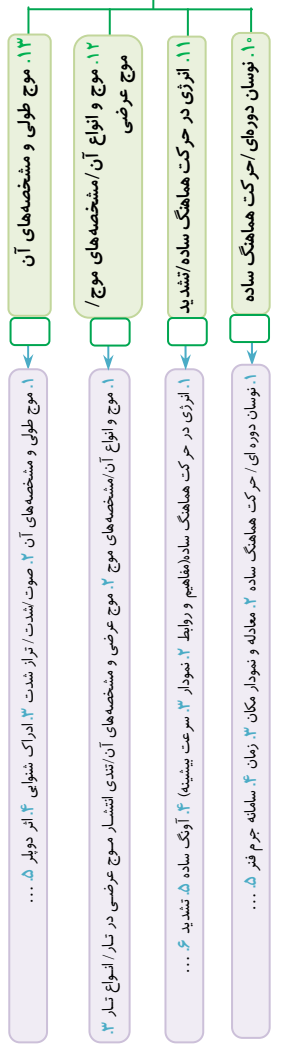 ۱۰. نوسان دوره‌ای/حرکت هماهنگ ساده
۱. نوسان دوره ای/ حرکت هماهنگ ساده ۲. معادله و نمودار مکان ۳. زمان ۴. سامانه جرم فنر ۵. ...
۱۱. انرژی در حرکت هماهنگ ساده/تشدید
۱. انرژی در حرکت هماهنگ ساده(مفاهیم و روابط ۲. نمودار ۳. سرعت بیشینه) ۴. آونگ ساده ۵. تشدید ۶. ...
۱۲. موج و انواع آن/مشخصه‌های موج/
موج عرضی
۱. موج و انواع آن/مشخصه‌های موج ۲. موج عرضی و مشخصه‌های آن/تندی انتشار موج عرضی در تار/ انواع تار ۳.
۱۳. موج طولی و مشخصه‌های آن
۱. موج طولی و مشخصه‌های آن ۲. صوت/شدت/ تراز شدت ۳. ادراک شنوایی ۴. اثر دوپلر ۵. ...